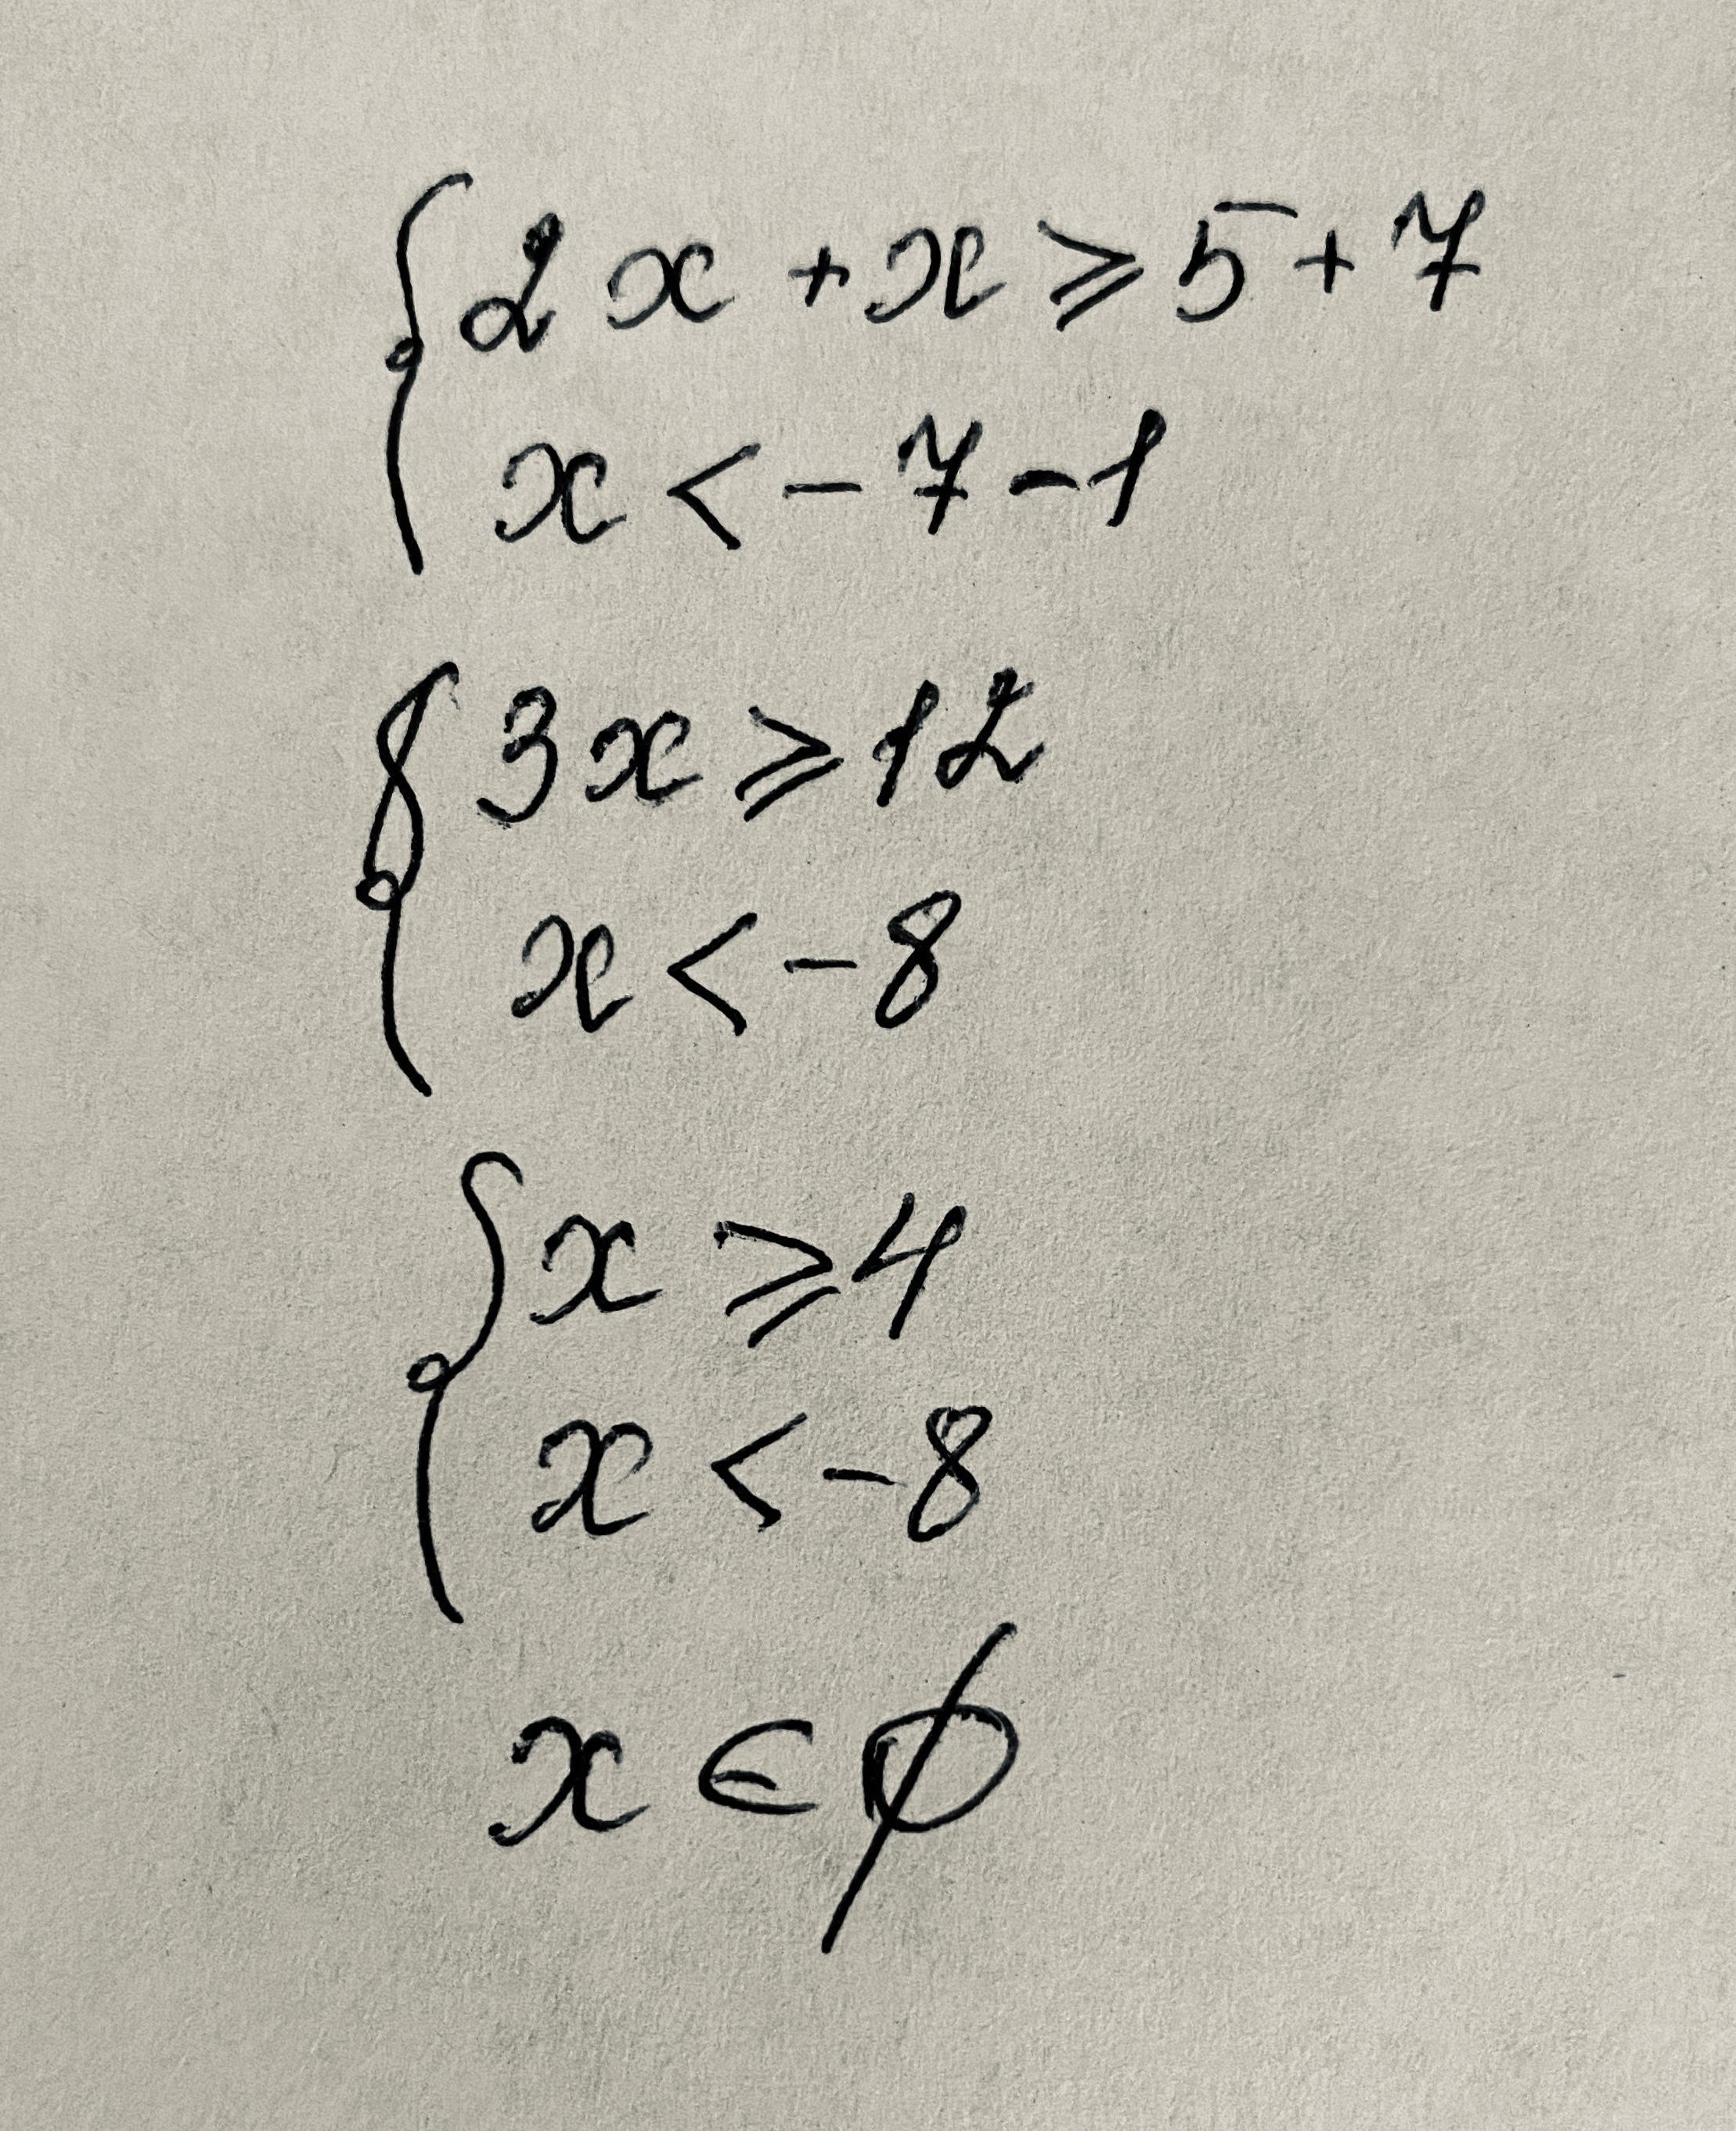 { 2x + x ⩾ 5 + 7
x < - 7 - 1
{ 3x ⩾ 12
x < - 8
{ x ⩾ 4
x < - 8
x ∈ ∅